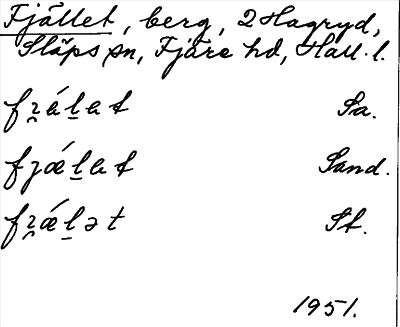 Fjället, berg, 2 Hagryd,
Släps sn, Fjäre hd, Hall. l.
Sa.
fjǽl̠at Sand.
St.
1951.